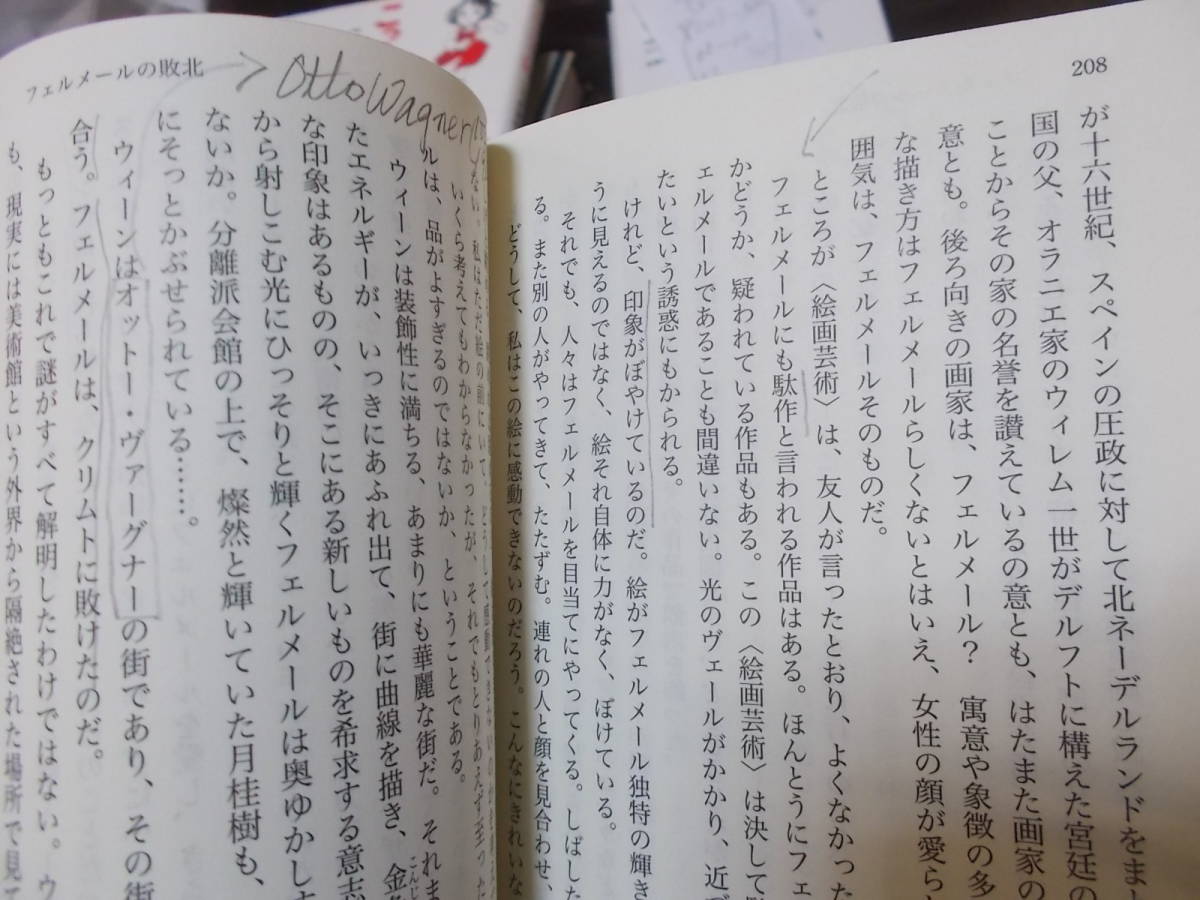 208
が十六世紀、スペインの圧政に対して北ネーデルランドをま
国の父、オラニエ家のウィレム一世がデルフトに構えた宮廷の
ことからその家の名誉を讃えているの意とも、はたまた画家の
意とも。後ろ向きの画家は、フェルメール？ 寓意や象徴の多
な描き方はフェルメールらしくないとはいえ、女性の顔が愛ら
囲気は、フェルメールそのものだ。
ところが〈絵画芸術〉は、友人が言ったとおり、よくなかった
フェルメールにも駄作と言われる作品はある。ほんとうにフェ
かどうか、疑われている作品もある。この〈絵画芸術〉は決して
ェルメールであることも間違いない。光のヴェールがかかり、近づ
たいという誘惑にもかられる。
けれど、印象がぼやけているのだ。絵がフェルメール独特の輝き
うに見えるのではなく、絵それ自体に力がなく、ぼけている。
それでも、人々はフェルメールを目当てにやってくる。しばした
る。また別の人がやってきて、たたずむ。連れの人と顔を見合わせ、
どうして、私はこの絵に感動できないのだろう。こんなにきれいな
フェルメールの敗北
Otto Wagner
ない。私はただ絵の前にいて、どうして感動できないの
いくら考えてもわからなかったが、それでもとりあえず至った
ルは、品がよすぎるのではないか、ということである。
ウィーンは装飾性に満ちる、あまりにも華麗な街だ。それま
たエネルギーが、いっきにあふれ出て、街に曲線を描き、金
こんじ
な印象はあるものの、そこにある新しいものを希求する意志
から射しこむ光にひっそりと輝くフェルメールは奥ゆかし
ないか。分離派会館の上で、燦然と輝いていた月桂樹も、
にそっとかぶせられている……。
ウィーンはオットー・ヴァーグナーの街であり、その街
合う。フェルメールは、クリムトに敗けたのだ。
もっともこれで謎がすべて解明したわけではない。ウ
も、現実には美術館という外界から隔絶された場所で見